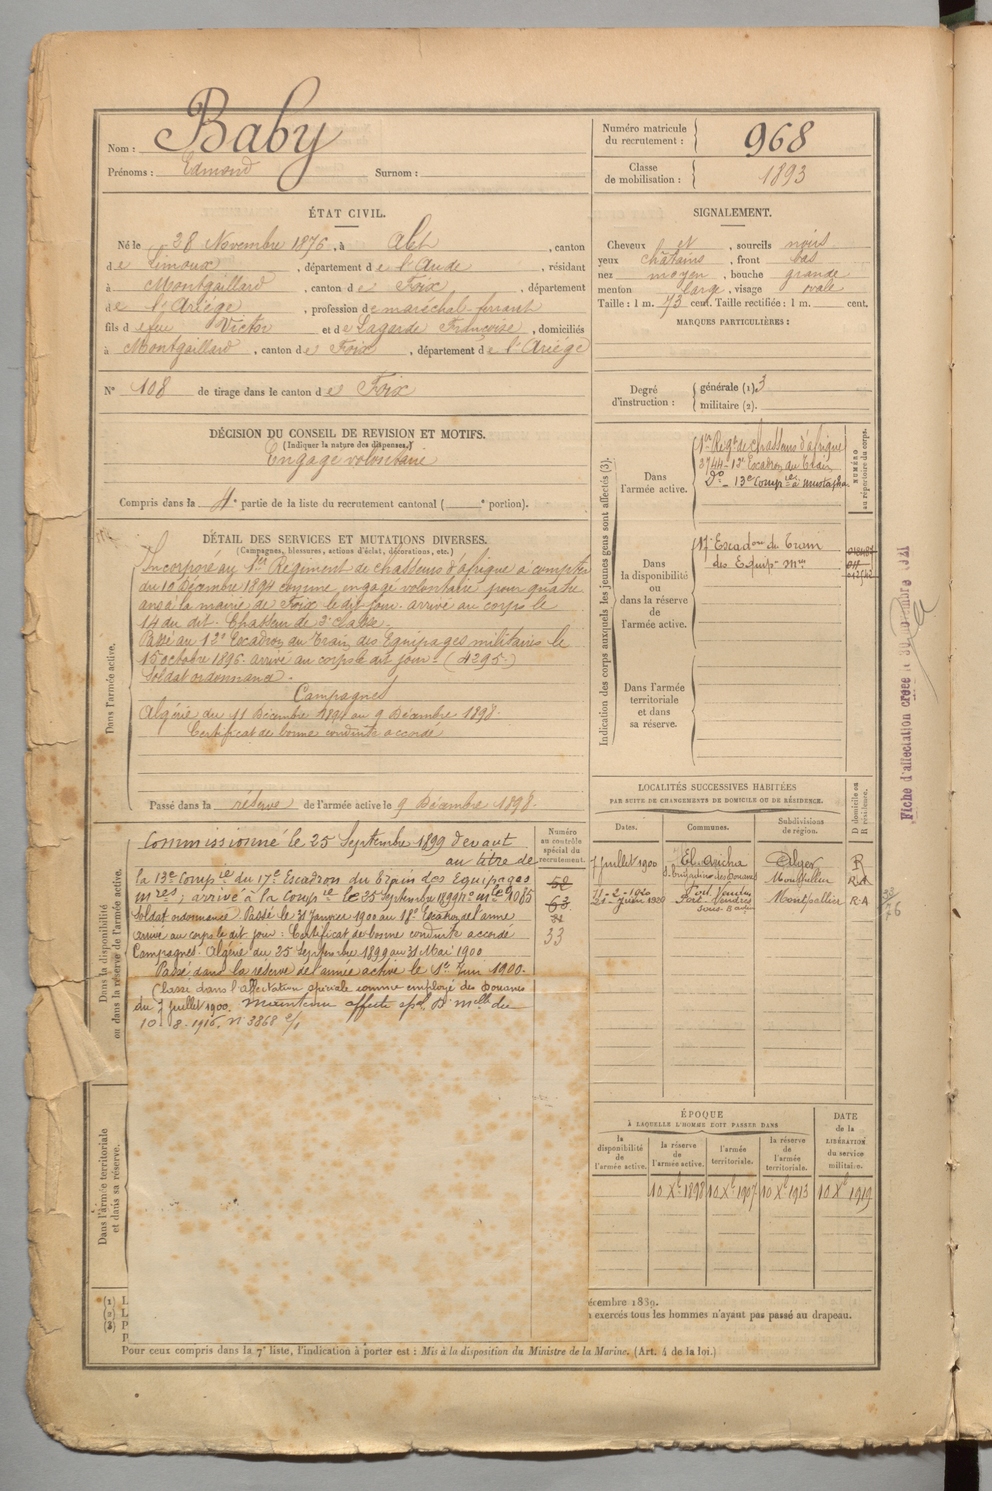 Nom : Baby
Prénoms : Edmond Surnom :
Numéro matricule
du recrutement : 968
Classe
de mobilisation : 1893
ÉTAT CIVIL.
Né le 28 Novembre 1876, à Alet, canton
de Limoux, département de l'Aude, résidant
à Montgaillard, canton de Foix, département
de l'Ariége, profession de maréchal-ferrant
fils de feu Victor et de Lagarde Françoise, domiciliés
à Montgaillard, canton de Foix, département de l'Ariége
N° 108 de tirage dans le canton de Foix
SIGNALEMENT.
Cheveux et, sourcils noirs
yeux châtains, front bas
nez moyen, bouche grande
menton large, visage ovale
Taille : 1 m. 73 cent. Taille rectifiée : 1 m. cent.
MARQUES PARTICULIÈRES :
Degré
d'instruction :
générale (1). 3
militaire (2).
DÉCISION DU CONSEIL DE REVISION ET MOTIFS.
(Indiquer la nature des dispenses.)
Engagé volontaire
Compris dans la 4e partie de la liste du recrutement cantonal ( e portion).
DÉTAIL DES SERVICES ET MUTATIONS DIVERSES.
(Campagnes, blessures, actions d'éclat, décorations, etc.)
Dans l'armée active.
Incorporé au 1er Régiment de chasseurs d'afrique à compter
du 10 Décembre 1894 comme engagé volontaire pour quatre
ans à la mairie de Foix le dit jour. arrivé au corps le
14 du dit. Chasseur de 2e classe.
Passé au 12e Escadron du Train des Equipages militaires le
15 octobre 1896. arrivé au corps le dit jour. (4295.)
Soldat ordonnance.
Campagnes
Algérie du 11 Décembre 1894 au 9 Décembre 1898.
Certificat de bonne conduite accordé
Passé dans la réserve de l'armée active le 9 Décembre 1898.
Indication des corps auxquels les jeunes gens sont affectés (3).
Dans
l'armée active.
1er Regt de chasseurs d'afrique
3744 - 12e Escadron du Train
do - 13e Compie à mustapha
NUMÉRO
au répertoire du corps.
Dans
la disponibilité
ou
dans la réserve
de
l'armée active.
17e Escadon du Train
des Equip. Mres
Dans l'armée
territoriale
et dans
sa réserve.
Fiche d'affectation créée le 30 novembre 1921
Dans la disponibilité
ou dans la réserve de l'armée active.
Commissionné le 25 Septembre 1899 devant
au titre de
la 13e Compie du 17e Escadron du Train des Equipages
Mres, arrivé à la Compie le 25 Septembre 1899 no mle 1085
Soldat ordonnance. Passé le 31 Janvier 1900 au 18e Escadron de l'arme
arrivé au corps le dit jour. Certificat de bonne conduite accordé
Campagnes. Algérie du 25 Septembre 1899 au 31 Mai 1900
Passé dans la réserve de l'armée active le 1er Juin 1900.
Classé dans l'affectation spéciale comme employé des Douanes
du 7 Juillet 1900. Maintenu affecté spal
10-8-1916. n 3868
Numéro
au contrôle
spécial du
recrutement.
58
63
33
LOCALITÉS SUCCESSIVES HABITÉES
PAR SUITE DE CHANGEMENTS DE DOMICILE OU DE RÉSIDENCE.
Dates. Communes. Subdivisions
de région.
D domicile ou
R résidence.
7 Juillet 1900 El-Aricha Alger R
Montpellier R.A
Port Vendres
21 Juin 1920 Port-Vendres Montpellier R.A
ÉPOQUE
À LAQUELLE L'HOMME DOIT PASSER DANS
la
disponibilité
de
l'armée active.
la réserve
de
l'armée active.
l'armée
territoriale.
la réserve
de
l'armée
territoriale.
DATE
de la
LIBÉRATION
du service
militaire.
10 Xe 1898 10 Xe 1907 10 Xe 1913 10 Xe 1919
Dans l'armée territoriale
et dans sa réserve.
(1) L
(2) L
(3) P
écembre 1889.
exercés tous les hommes n'ayant pas passé au drapeau.
Pour ceux compris dans la 7e liste, l'indication à porter est : Mis à la disposition du Ministre de la Marine. (Art. 4 de la loi.)